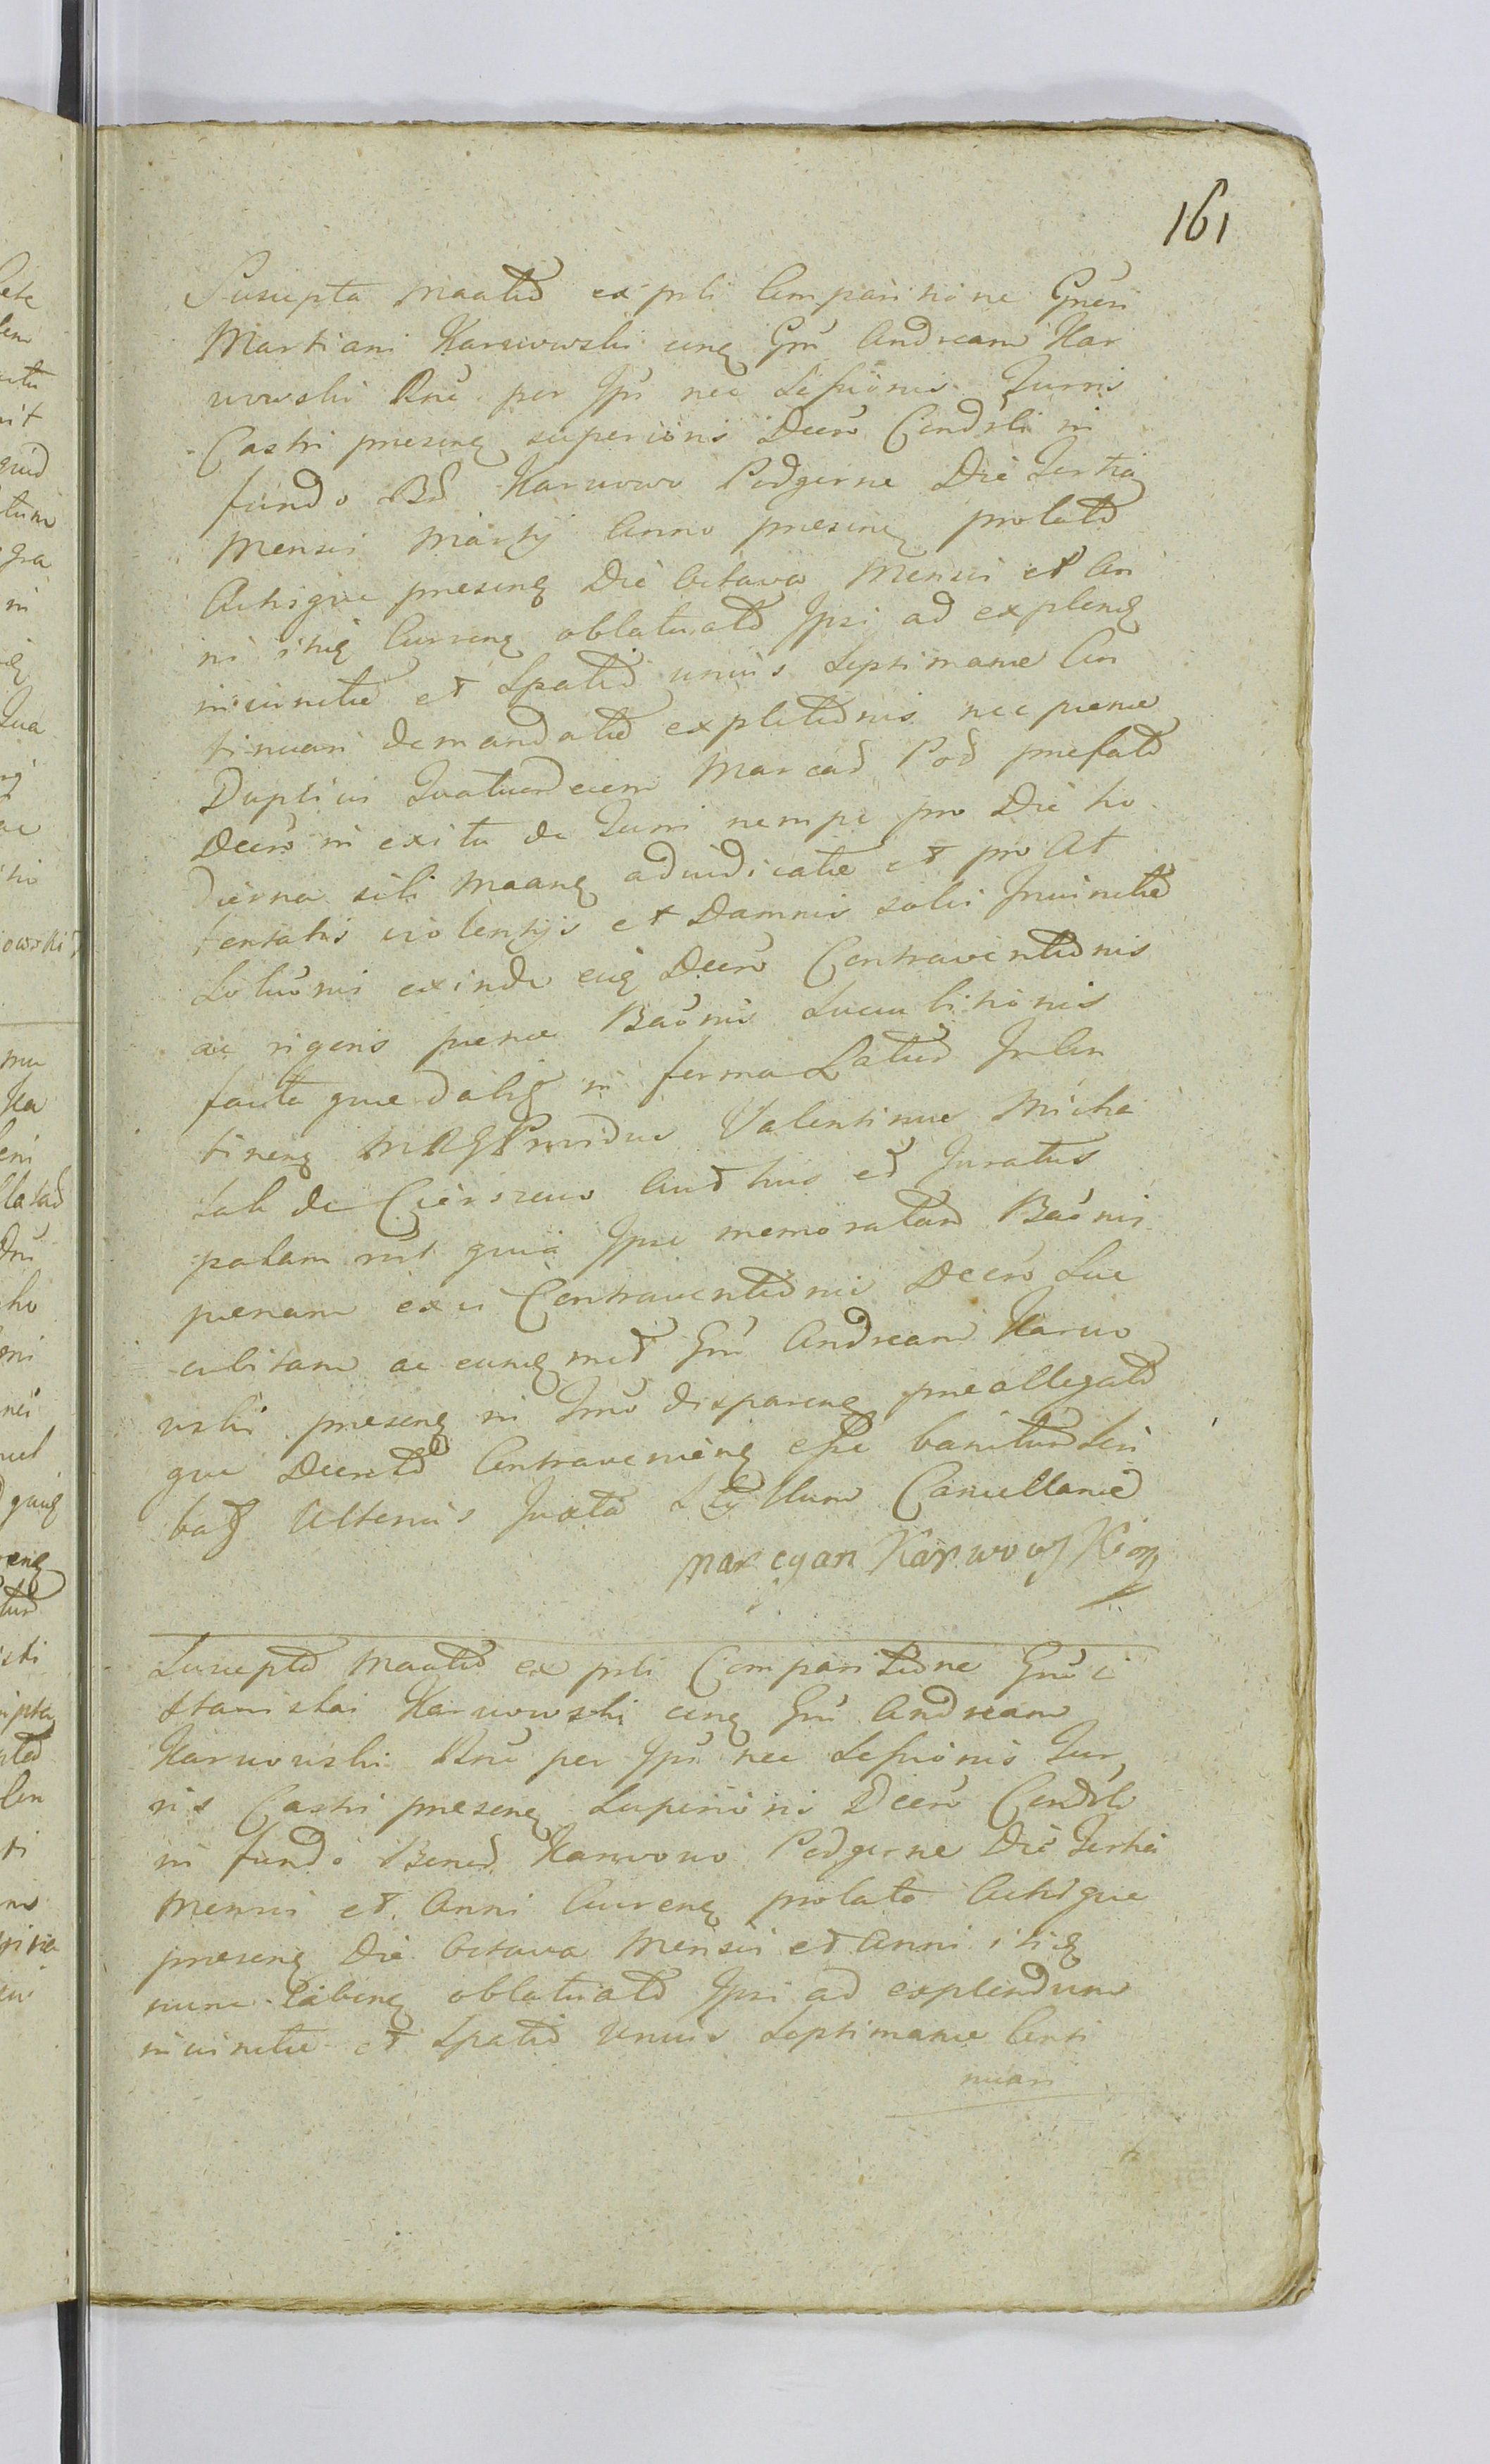 161
Suscepta Maattē ex psli Comparitione Gnēsi
Martiani Karwowski cunq Gnū Andream Kar
wowski Rnē per Ipū nec Sessionis Turris
Castri presenq superioris Decrō Condsli in
fundo Bd Karwowo Podgorne Die Tertia
Mensis Martij Anno presenq prolatō
Actisque presenq Die Octava Mensis et An
ni istiq Currenq oblatuatō Ipsi ad explenq
iniunctae et Spatiō unius Septimanae Con
tinuari demandatae expletionis nec paenae
Duplicis Quatuordecim Marcarū Pod prefatō
Decrō in exitu de Turri nempe pro Die ho
dierna sibi Maanq adiudicatae et pro At
tentatis violentijs et Damnis solis Iniunctae
Solūonis exinde eiq Decrō Contraventionis
ac rigoris paenae Baōnis Succubitionis
facta que dalīq in forma Latiūs In Con
tinenq MRG Providus Valentinus Micha
lak de Cierszewo Auðthus et Juratus
palam rūt quia Ipse memoratam Baōnis
paenam ex vi Contraventionis Decrō Suc
cubitam ac eunq mēt Gnū Andream Karwo
wski presenq in Tmō disparenq preallegatō
que Decretō Contravenienq esse banitum scri
bat Ulterius Juxta Styllum Cancellariae
Marcyan Karwowski mp
Susceptō Maattē ex psli Comparitione Gnūi
Stanislai Karwowski cunq Gnū Andream
Karwowski Rnē per Ipū nec Sessionis Tur
ris Castri presenq Superioris Decrō Condslō
in fundo Bonoð Karwowo Podgorne Die Tertia
Mensis et Anni Currenq prolatō Actisque
presenq Die Octava Mensis et Anni istiq
nunc labenq oblatuatō Ipsi ad explendum
iniunctae et Spatiō Unius Septimanae Conti
nuari